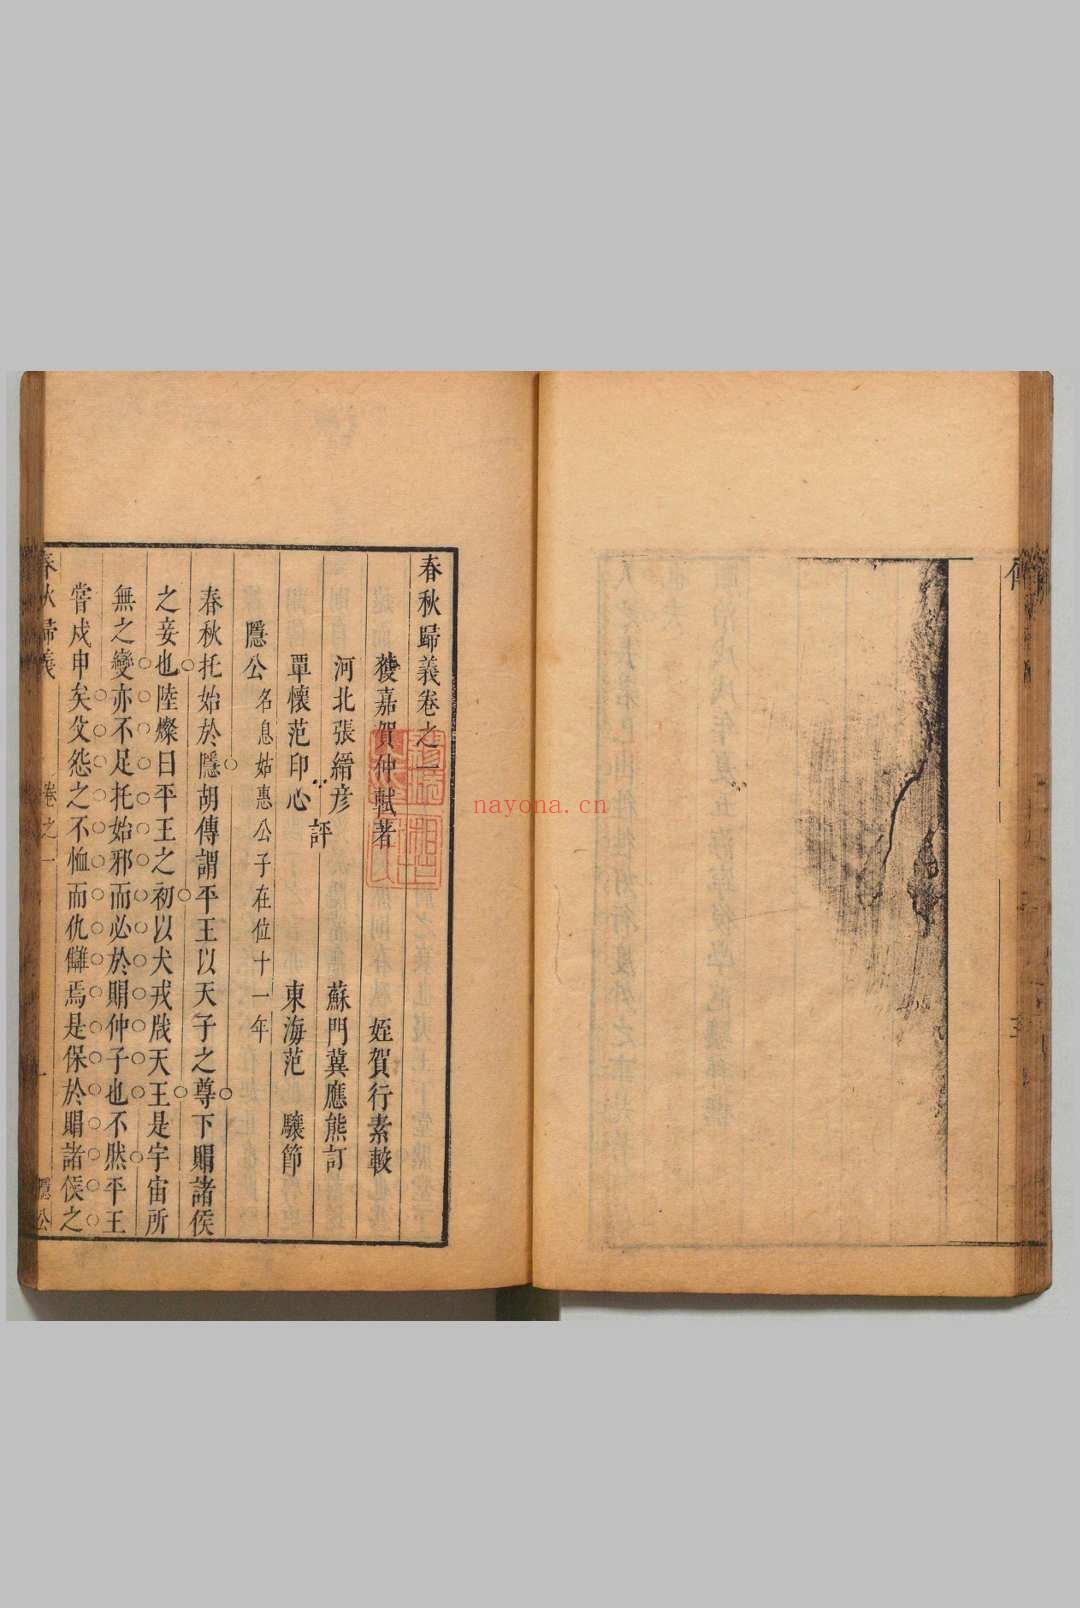 春秋歸義卷之一
獲嘉賀仲軾著　姪賀行素較
河北張縉彥　蘇門冀應熊訂
評
覃懷范印心　東海范　驤節
隱公名息姑惠公子在位十一年
春秋托始於隱胡傳謂平王以天子之尊下賵諸侯
之妾也陸燦曰平王之初以犬戎戕天王是宇宙所
無之變亦不足托始邪而必於賵仲子也不然平王
嘗戍申矣父怨之不恤而仇讎焉是保於賵諸侯之
春秋歸義　卷之一　一　隱公
nayona.cn